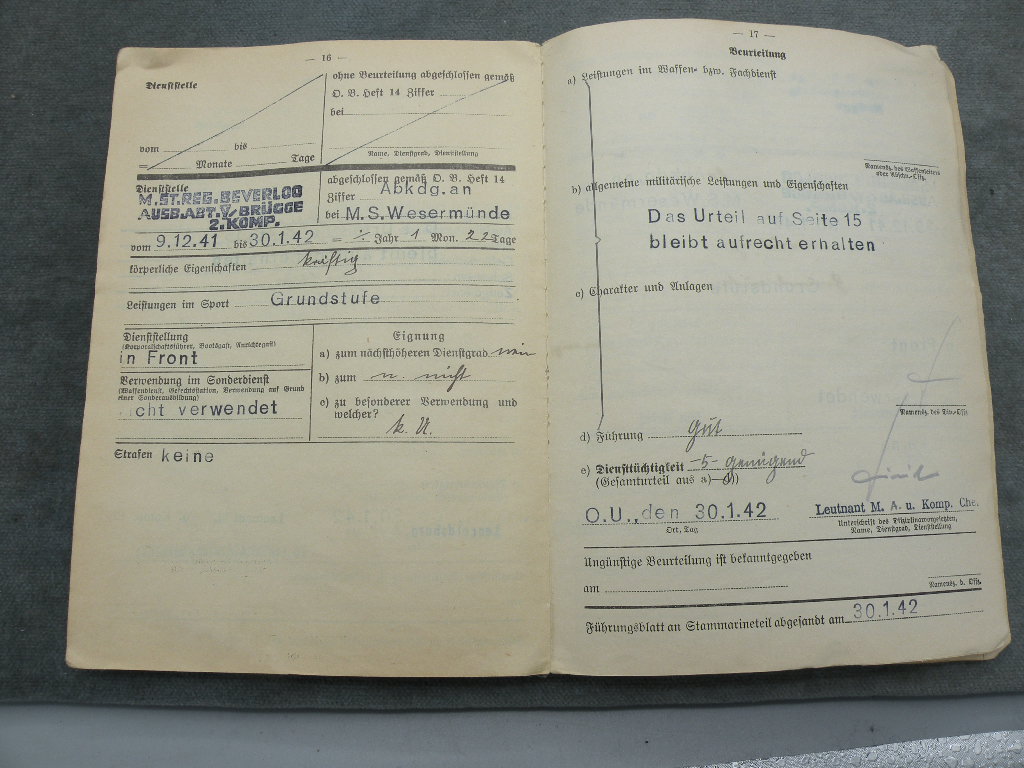 — 16 —
Dienststelle
ohne Beurteilung abgeschlossen gemäß
O. B. Heft 14 Ziffer
bei
vom bis
= Monate Tage
Name, Dienstgrad, Dienststellung
Dienststelle
M.ST.REG.BEVERLOO
AUSB.ABT.V/BRÜGGE
2.KOMP.
abgeschlossen gemäß O. B. Heft 14
Ziffer Abkdg.an
bei M.S.Wesermünde
vom 9.12.41 bis 30.1.42 = ./. Jahr 1 Mon. 22 Tage
körperliche Eigenschaften kräftig
Leistungen im Sport Grundstufe
Dienststellung
(Korporalschaftsführer, Bootsgast, Anrichtegast)
in Front
Verwendung im Sonderdienst
(Waffendienst, Gefechtsstation, Verwendung auf Grund
einer Sonderausbildung)
icht verwendet
Eignung
a) zum nächsthöheren Dienstgrad nein
b) zum n. nicht
c) zu besonderer Verwendung und
welcher?
k. U.
Strafen keine
— 17 —
Beurteilung
a) Leistungen im Waffen- bzw. Fachdienst
Namensz. des Waffenleiters
oder Abschn.-Offz.
b) allgemeine militärische Leistungen und Eigenschaften
Das Urteil auf Seite 15
bleibt aufrecht erhalten
c) Charakter und Anlagen
Namensz. des Div.-Offz.
d) Führung gut
e) Diensttüchtigkeit -5- genügend
(Gesamturteil aus a)—d))
O.U.,den 30.1.42
Ort, Tag
Leutnant M. A. u. Komp. Che.
Unterschrift des Disziplinarvorgesetzten,
Name, Dienstgrad, Dienststellung
Ungünstige Beurteilung ist bekanntgegeben
am
Namensz. d. Offz.
Führungsblatt an Stammarineteil abgesandt am 30.1.42